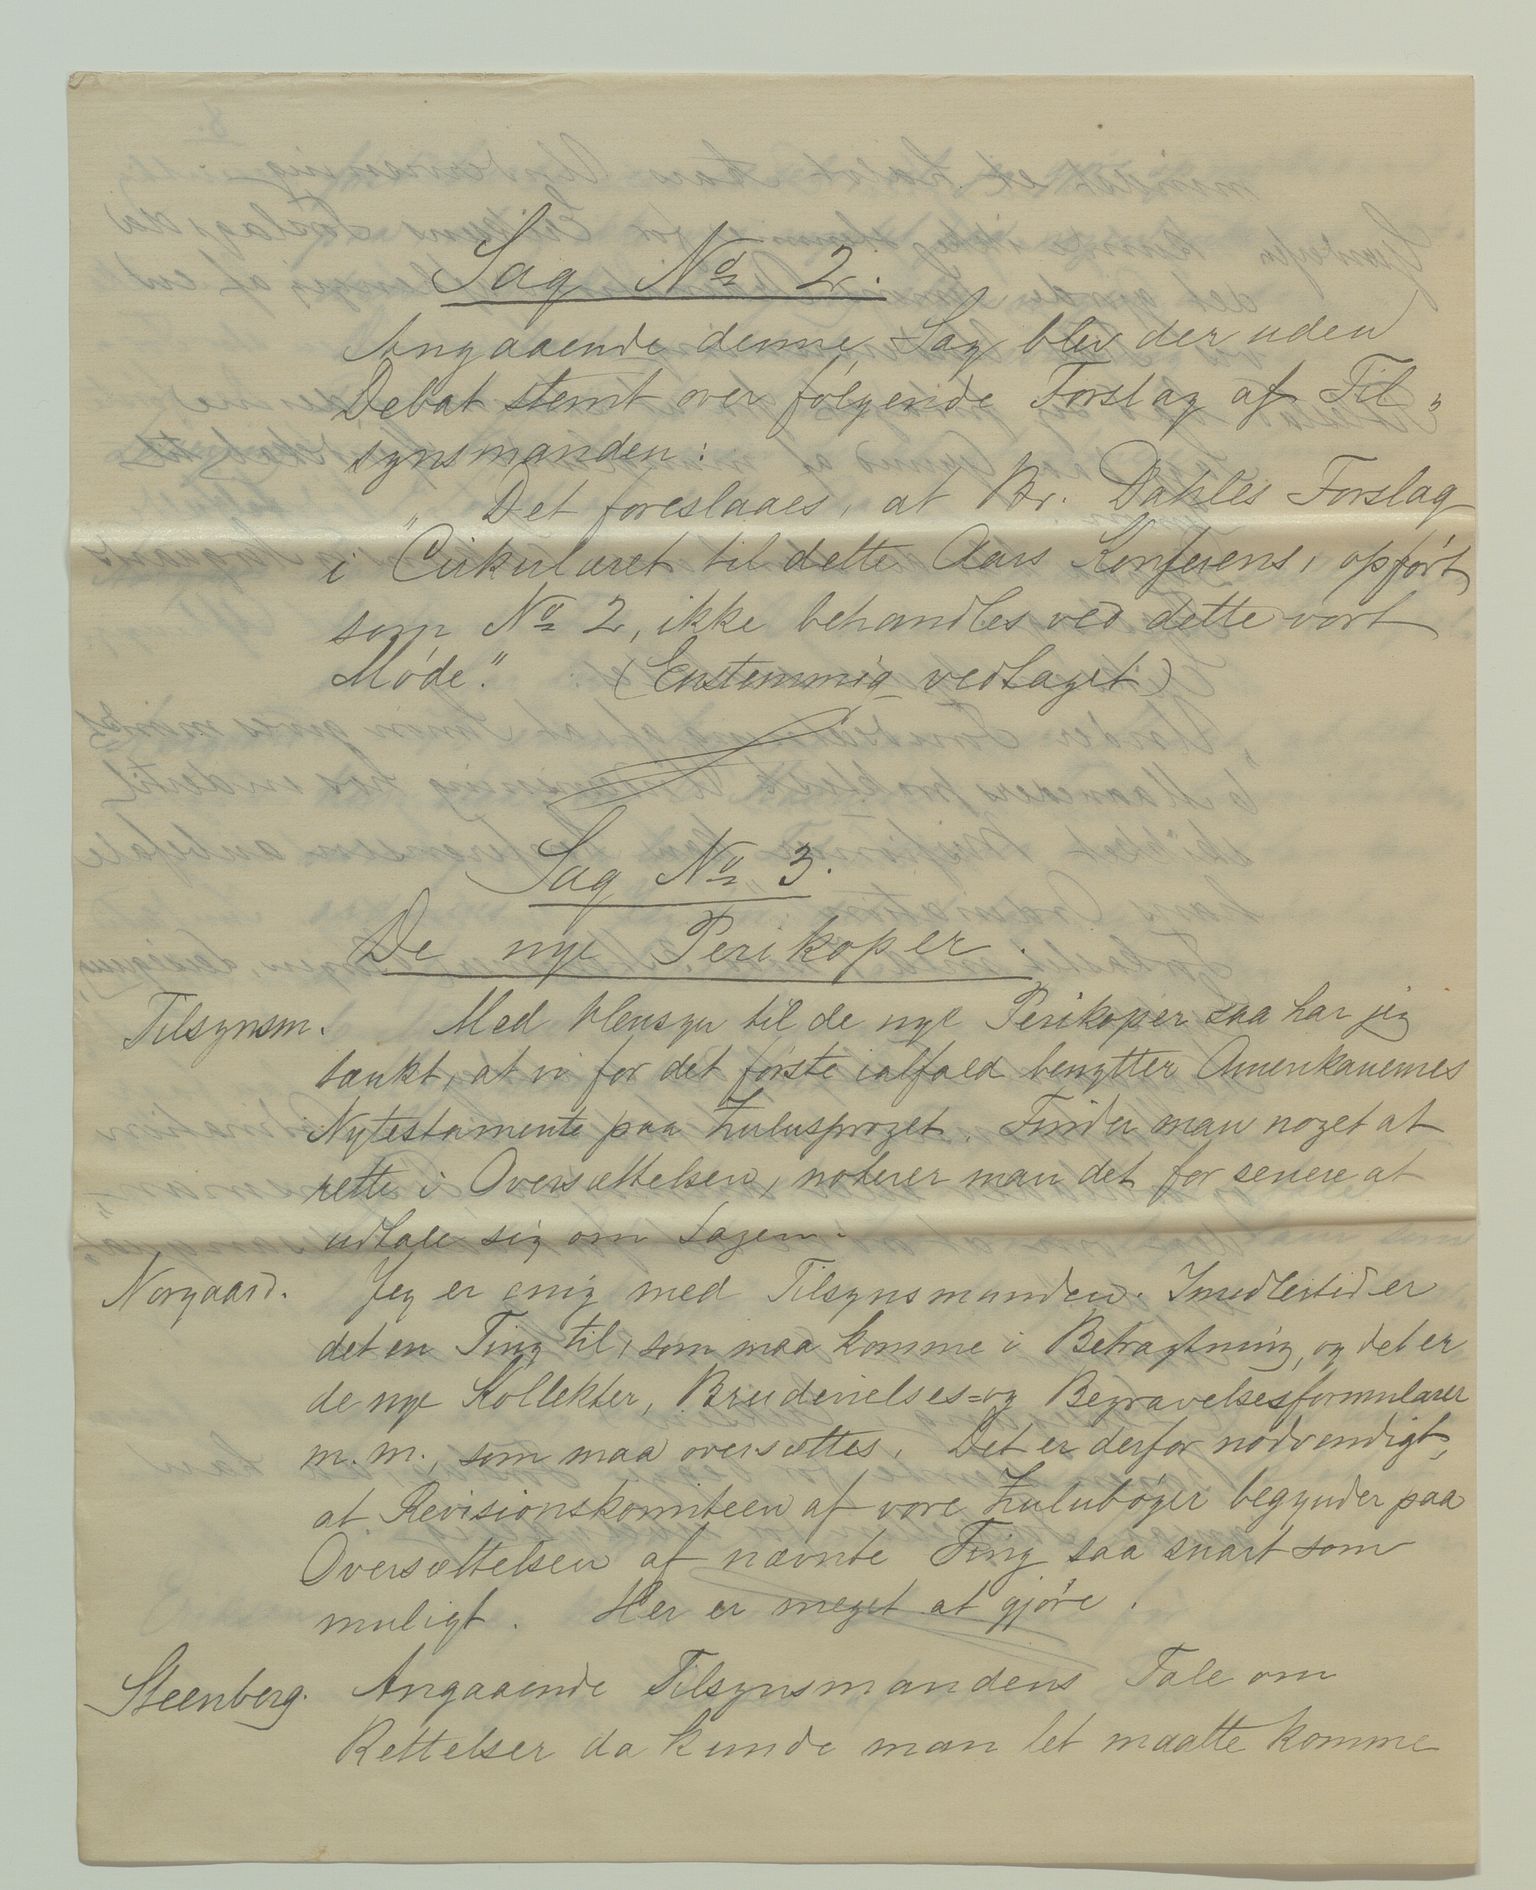 Sag No 2.
Angaaende denne Sag blev der uden
Debat stemt over følgende Forslag af Til-
synsmanden:
„Det foreslaaes, at Br. Dahles Forslag
i Cirkulæret til dette Aars Konferens, opført
som No 2, ikke behandles ved dette vort
Møde." (Enstemmig vedtaget)
Sag No 3.
De nye Perikoper.
Tilsynsm. Med Hensyn til de nye Perikoper saa har jeg
tænkt, at vi for det første ialfald benytter Amerikanernes
Nytestamente paa Zulusproget. Finder man noget at
rette i Oversættelsen, noterer man det for senere at
udtale sig om Sagen.
Norgaard. Jeg er enig med Tilsynsmanden. Imidlertid er
det en Ting til, som maa komme i Betragtning, og det er
de nye Kollekter, Brudevielses- og Begravelsesformularer
m. m., som maa oversættes. Det er derfor nødvendigt,
at Revisionskomiteen af vore Zulubøger begynder paa
Oversættelsen af nævnte Ting saa snart som
muligt. Her er meget at gjøre.
Steenberg. Angaaende Tilsynsmandens Tale om
Rettelser da kunde man let maatte komme